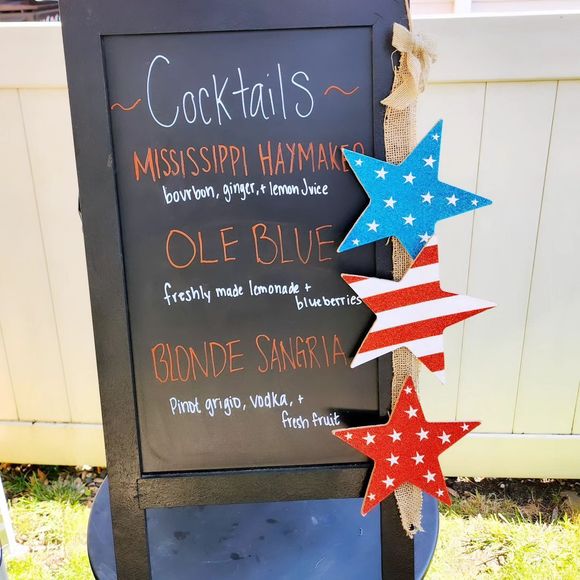 ~ Cocktails ~
MISSISSIPPI HAYMAKER
bourbon, ginger, + lemon Juice
OLE BLUE
freshly made lemonade +
blueberries
BLONDE SANGRIA
Pinot grigio, vodka, +
fresh fruit